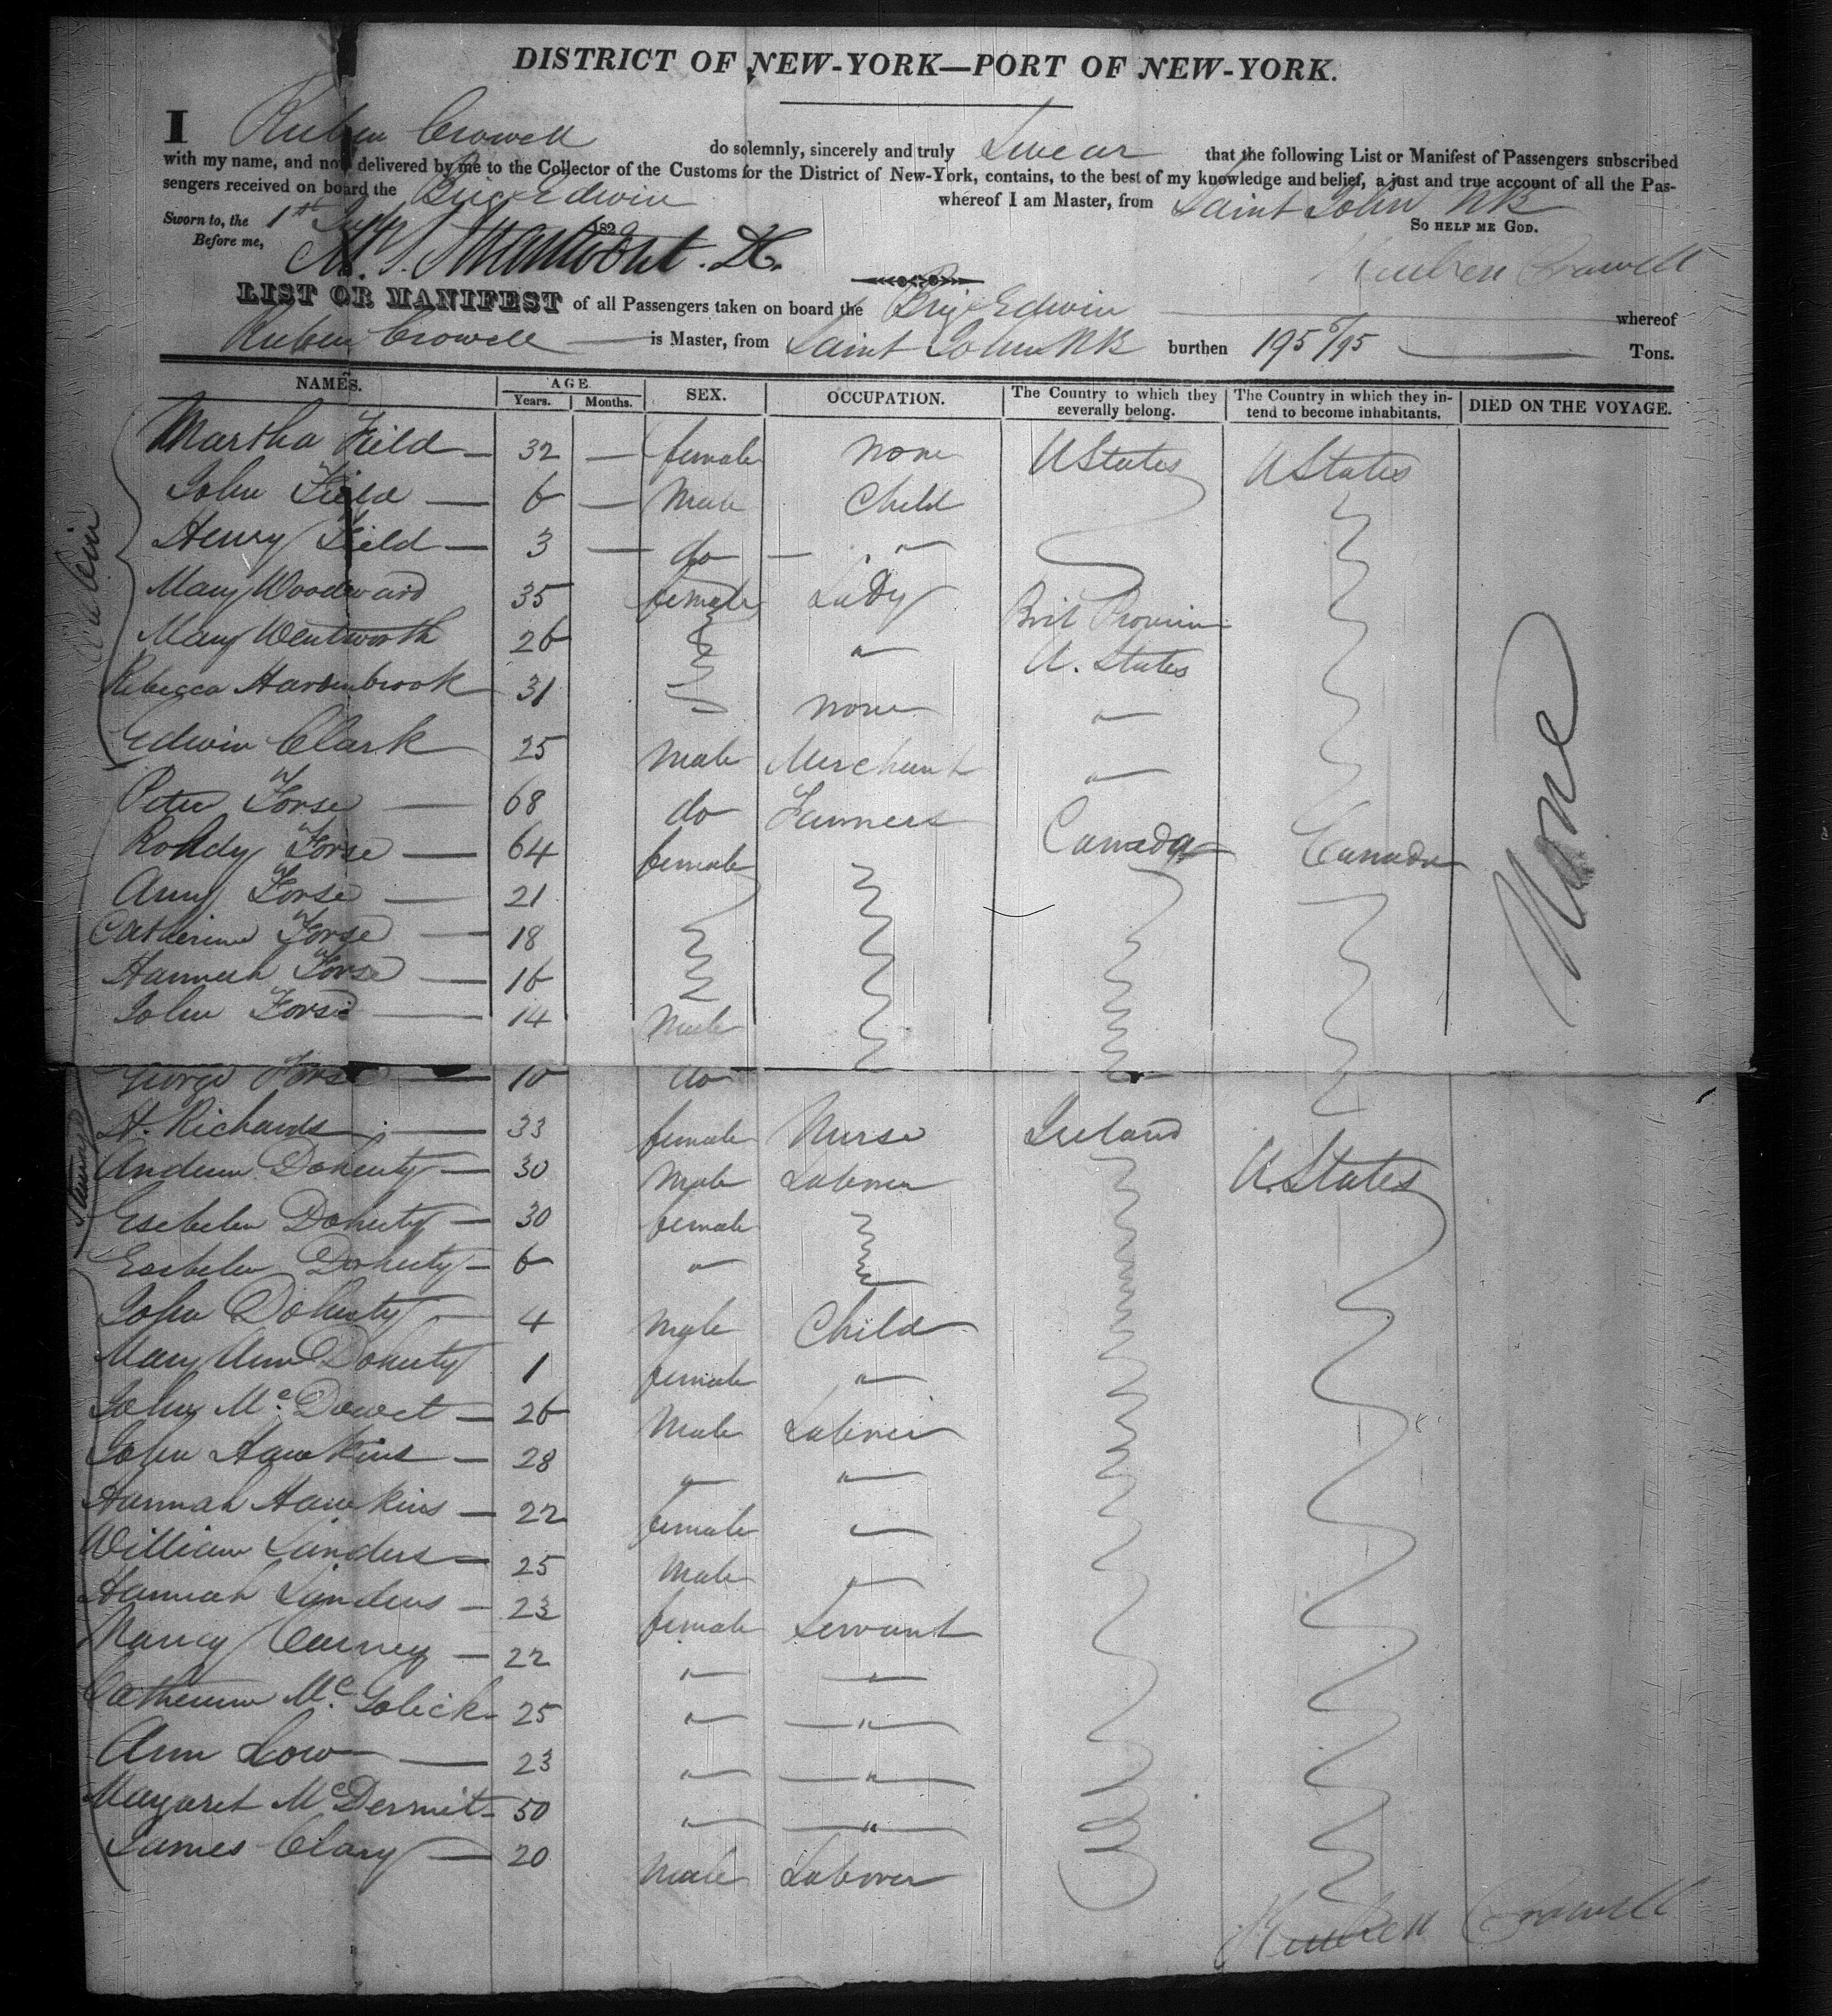 DISTRICT OF NEW-YORK—PORT OF NEW-YORK.
I Ruben Crowell do solemnly, sincerely and truly Swear that the following List or Manifest of Passengers subscribed
with my name, and now delivered by me to the Collector of the Customs for the District of New-York, contains, to the best of my knowledge and belief, a just and true account of all the Pas-
sengers received on board the Brig Edwin whereof I am Master, from Saint John NB
Sworn to, the 1st 182 So HELP ME GOD.
Before me, Reuben Crowell
LIST OR MANIFEST of all Passengers taken on board the Brig Edwin whereof
Ruben Crowell is Master, from Saint John NB burthen 195 /95 Tons.
NAMES. AGE Years. Months. SEX. OCCUPATION. The Country to which they severally belong. The Country in which they intend to become inhabitants. DIED ON THE VOYAGE.
Martha Field 32 — female none U States U States
John Field — 6 — Male Child
Henry Field — 3 — do — "
Mary Woodward 35 female Lady Brit Provin
Mary Wentworth 26 " U. States
Rebecca Hardenbrook 31 none "
Edwin Clark 25 Male Merchant "
Peter Forse — 68 do Farmers
Rohdy Forse — 64 female Canada Canada
Amy Forse — 21
Catherine Forse — 18
Hannah Forse — 16
John Forse — 14 Male
George Forse — 10 do
H. Richards — 33 female Nurse Ireland
Andrew Doherty — 30 Male Laborer U. States
Esebelen Doherty — 30 female
Esebelen Doherty — 6 "
John Doherty — 4 Male Child
Mary Ann Doherty 1 female "
John Mc Dowet — 26 Male Laborer
John Hawkins — 28 " "
Hannah Hawkins — 22 female "
William Sanders — 25 Male "
Hannah Sanders — 23 female Servant
Nancy Carney — 22 " "
Catherine Mc Golick 25 " "
Ann Low — 23 " "
Margaret McDermit 50 " "
James Clary — 20 Male Laborer
None
Reuben Crowell